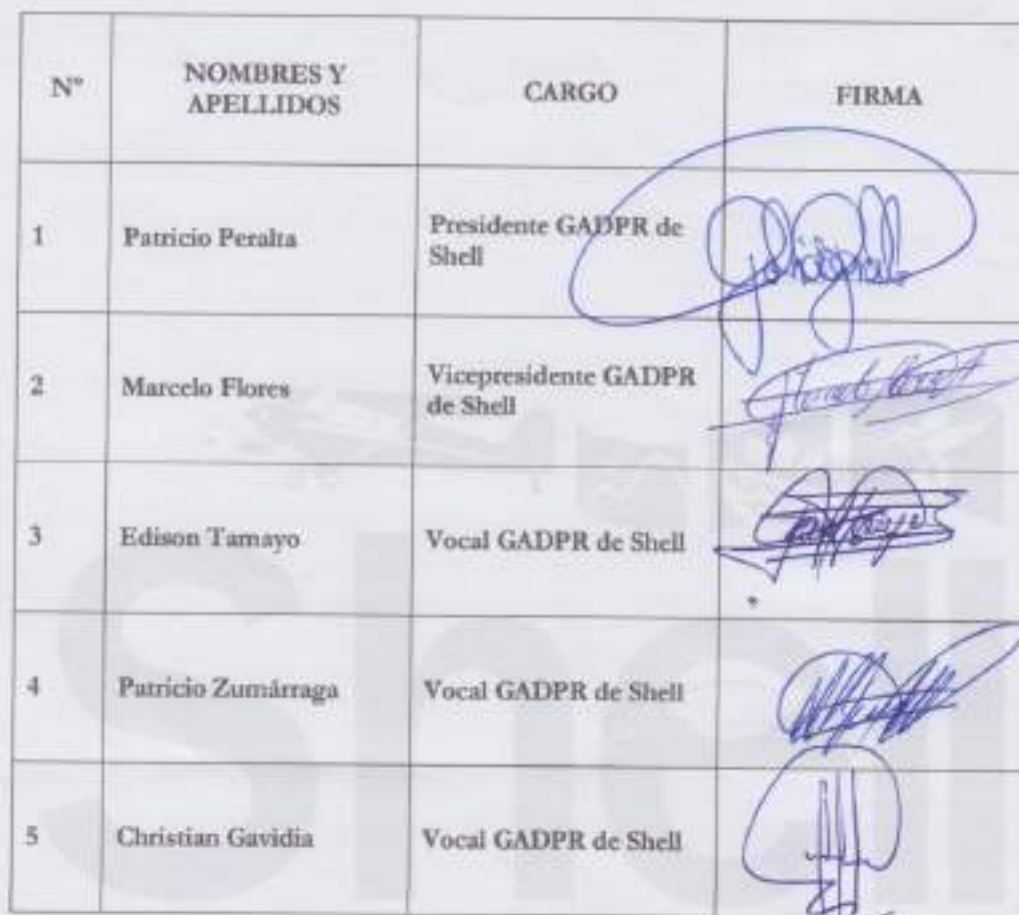 N° NOMBRES Y
APELLIDOS CARGO FIRMA
1 Patricio Peralta Presidente GADPR de
Shell
2 Marcelo Flores Vicepresidente GADPR
de Shell
3 Edison Tamayo Vocal GADPR de Shell
4 Patricio Zumárraga Vocal GADPR de Shell
5 Christian Gavidia Vocal GADPR de Shell
Shell